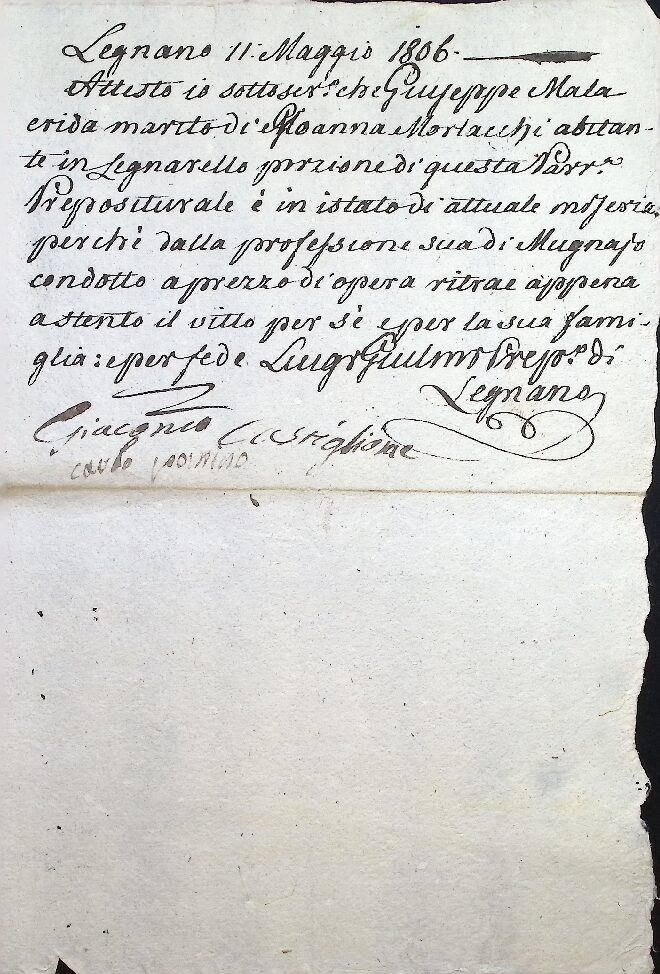 Legnano 11. Maggio 1806.
Attesto io sottoscr.o che Giuseppe Mala
crida marito di Gioanna Morlacchi abitan-
te in Legnarello porzione di questa Parr.a
Prepositurale è in istato di attuale miseria
perchè dalla professione sua di Mugnajo
condotto a prezzo di opera ritrae appena
a stento il vitto per sè e per la sua fami-
glia: e per fede Luigi Giulini Prep.o di
Legnano
Castiglione
carlo